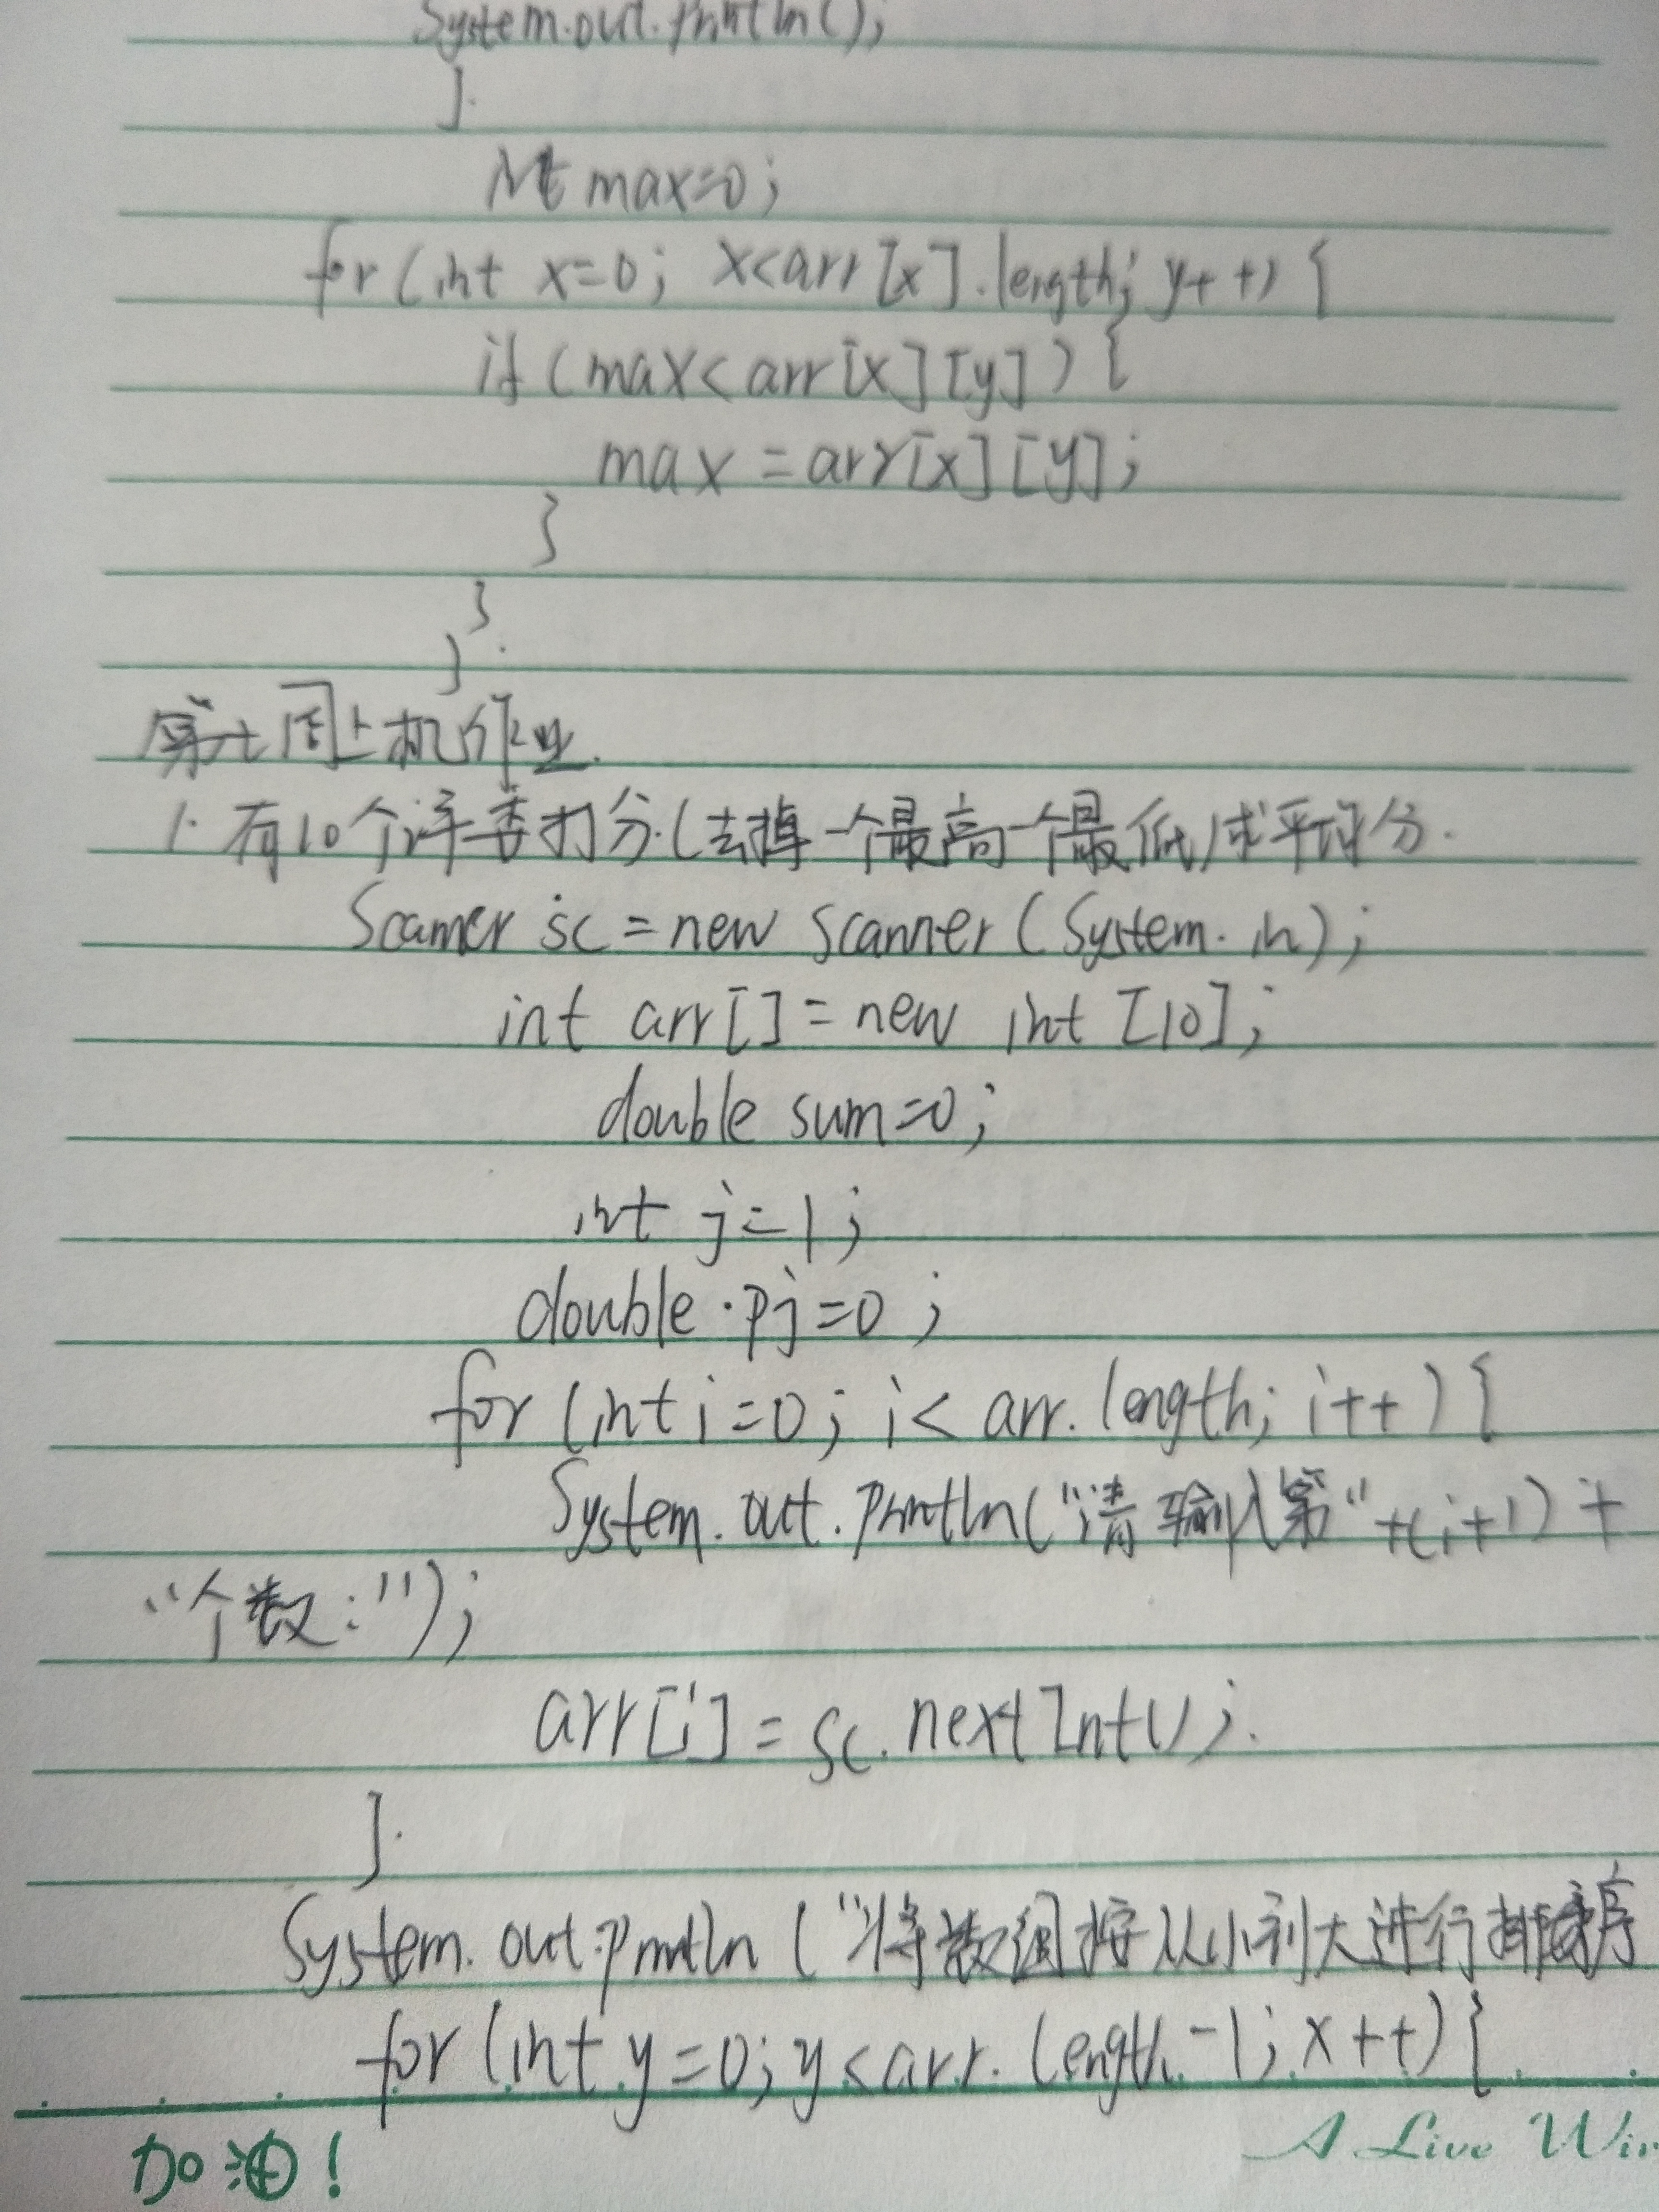 System.out.println();
}
int max=0;
for(int x=0; x<arr[x].length; y++){
if(max<arr[x][y]){
max=arr[x][y];
}
}
}
第七周上机作业.
1. 有10个评委打分.(去掉一个最高一个最低)求平均分.
Scanner sc=new Scanner(System.in);
int arr[]=new int[10];
double sum=0;
int j=1;
double pj=0;
for(int i=0; i<arr.length; i++){
System.out.println("请输入第"+(i+1)+
"个数:");
arr[i]=sc.nextInt();
}
System.out.println("将数组按从小到大进行排序
for(int y=0; y<arr.length-1; x++){
加油!
A Live Win